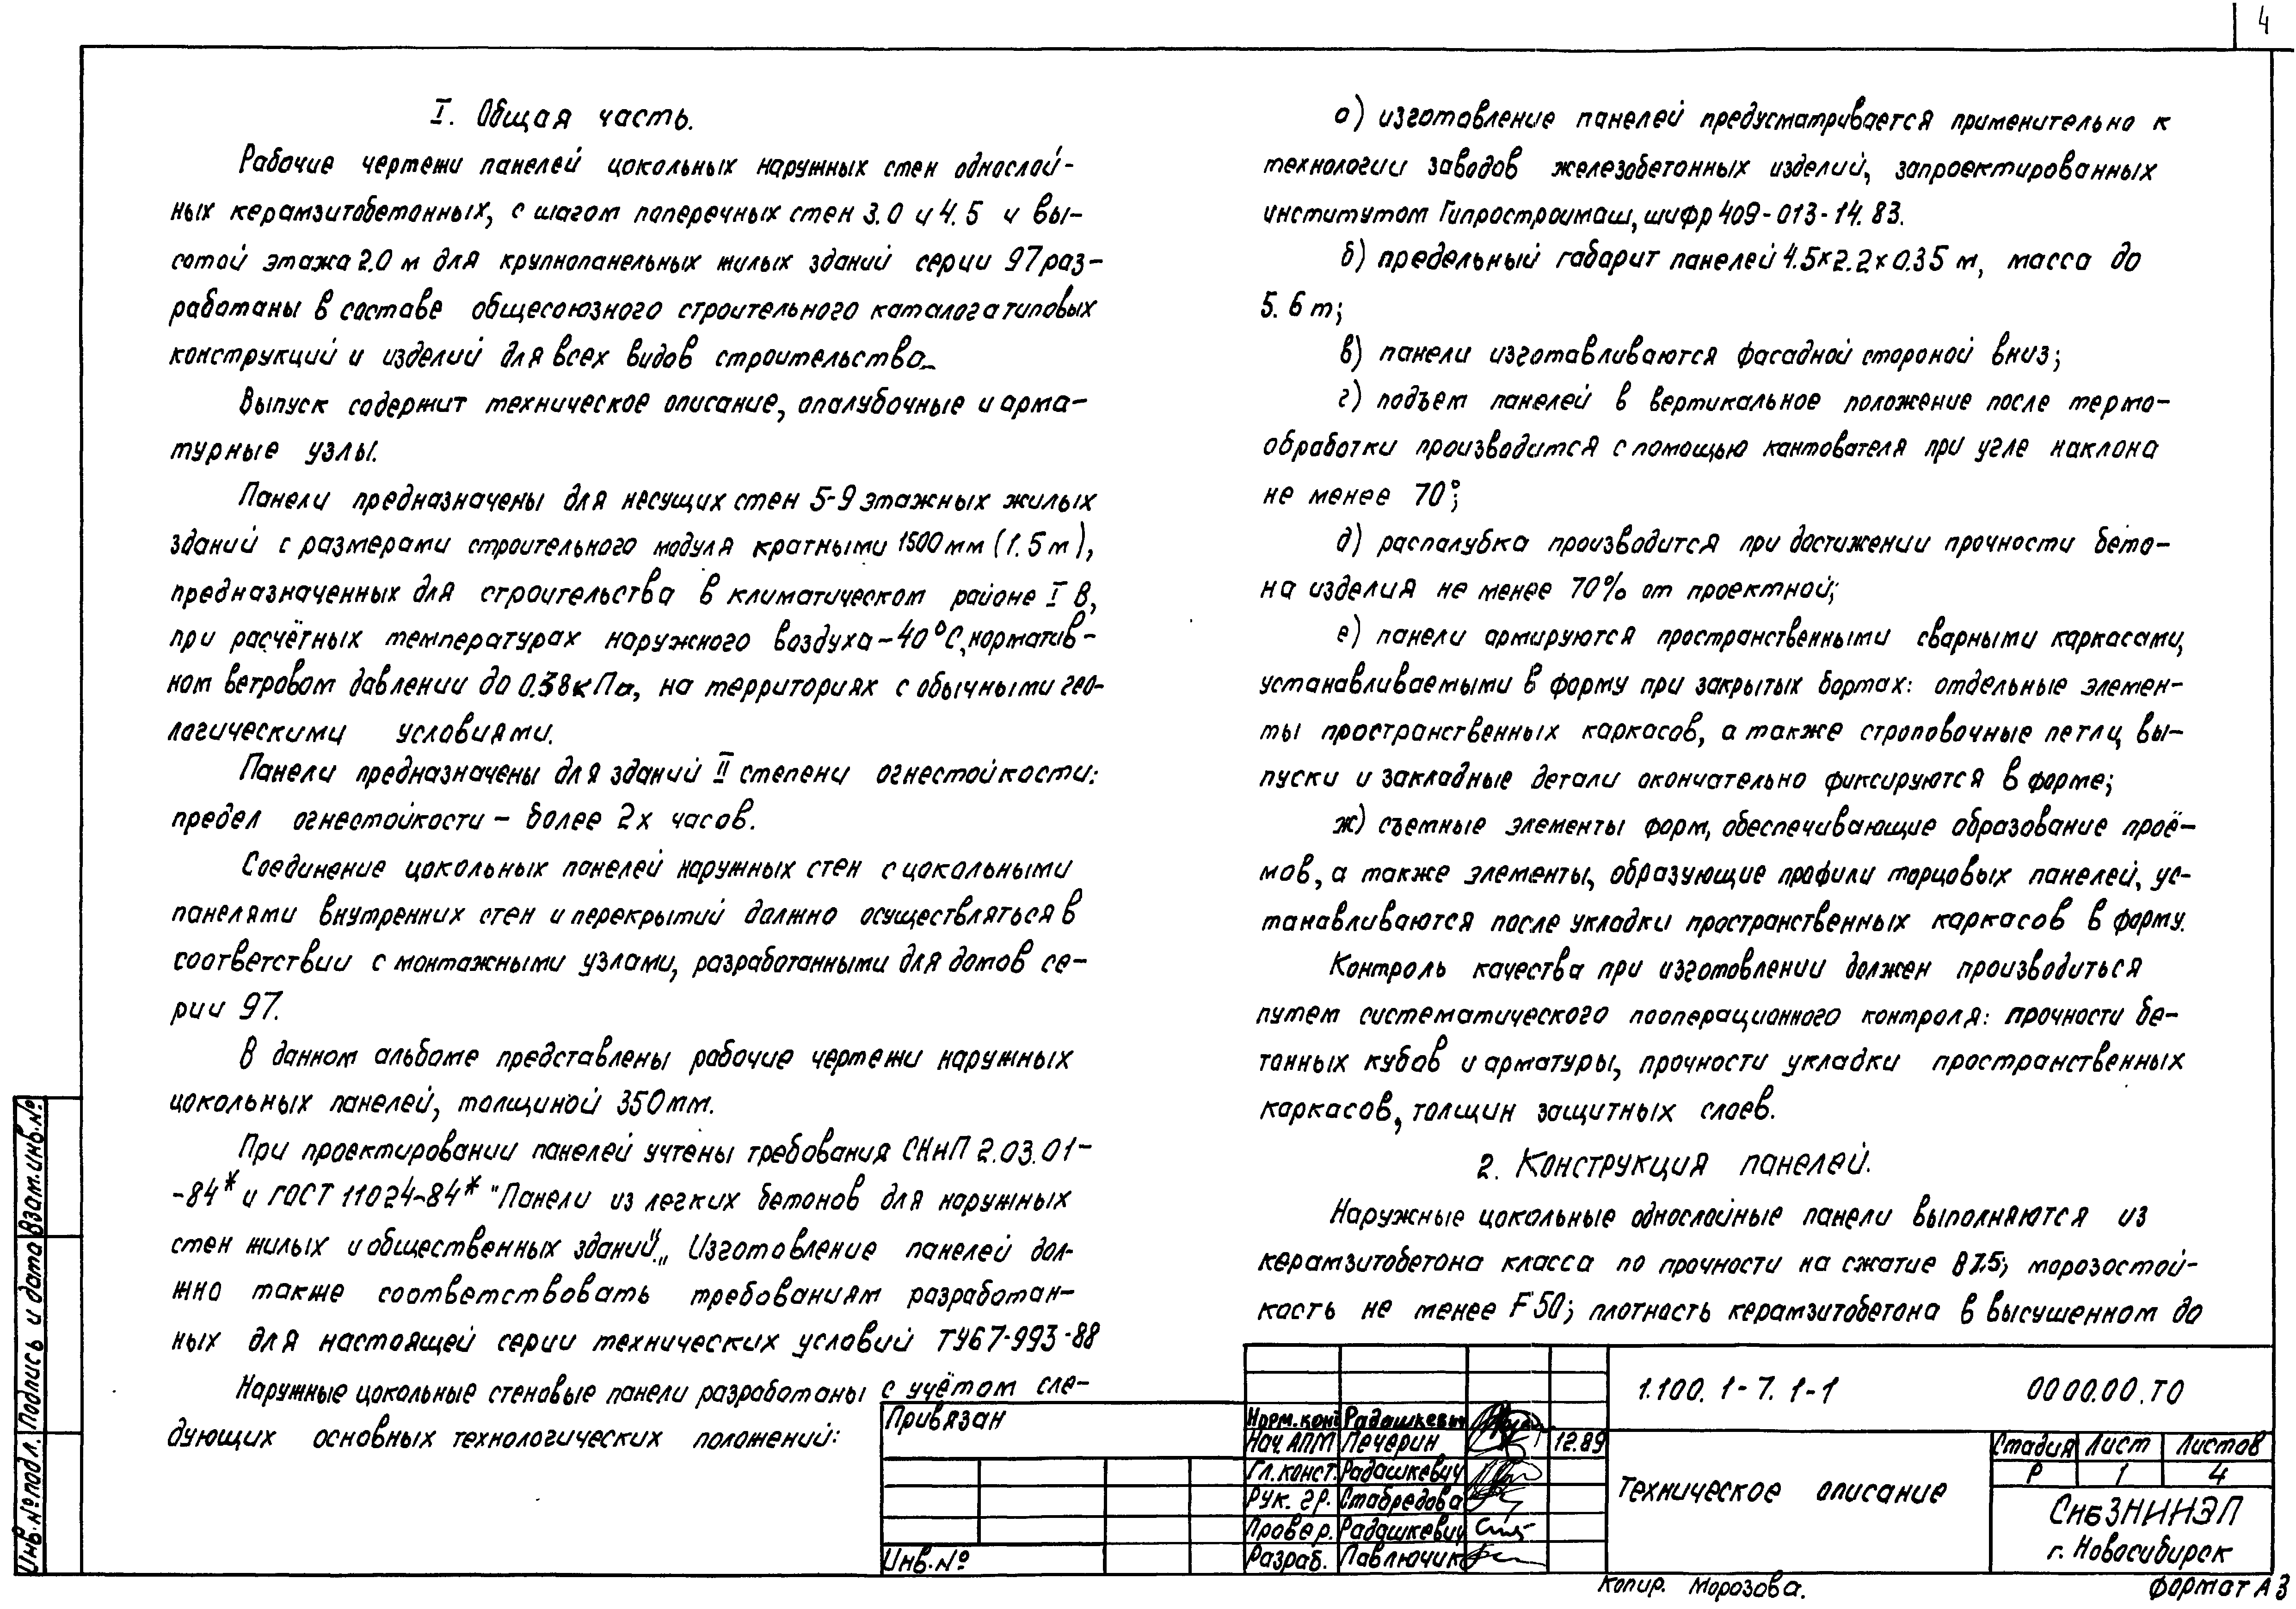 4
I. Общая часть.
Рабочие чертежи панелей цокольных наружных стен однослой-
ных керамзитобетонных, с шагом поперечных стен 3.0 и 4.5 и вы-
сотой этажа 2.0 м для крупнопанельных жилых зданий серии 97 раз-
работаны в составе общесоюзного строительного каталога типовых
конструкций и изделий для всех видов строительства.
Выпуск содержит техническое описание, опалубочные и арма-
турные узлы.
Панели предназначены для несущих стен 5-9 этажных жилых
зданий с размерами строительного модуля кратными 1500 мм (1.5 м),
предназначенных для строительства в климатическом районе I В,
при расчётных температурах наружного воздуха -40°С, норматив-
ном ветровом давлении до 0.38 кПа, на территориях с обычными гео-
логическими условиями.
Панели предназначены для зданий II степени огнестойкости:
предел огнестойкости - более 2х часов.
Соединение цокольных панелей наружных стен с цокольными
панелями внутренних стен и перекрытий должно осуществляться в
соответствии с монтажными узлами, разработанными для домов се-
рии 97.
В данном альбоме представлены рабочие чертежи наружных
цокольных панелей, толщиной 350 мм.
При проектировании панелей учтены требования СНиП 2.03.01-
-84* и ГОСТ 11024-84* "Панели из легких бетонов для наружных
стен жилых и общественных зданий". Изготовление панелей дол-
жно также соответствовать требованиям разработан-
ных для настоящей серии технических условий ТУ67-993-88
Наружные цокольные стеновые панели разработаны с учётом сле-
дующих основных технологических положений:
а) изготовление панелей предусматривается применительно к
технологии заводов железобетонных изделий, запроектированных
институтом Гипростроммаш, шифр 409-013-14.83.
б) предельный габарит панелей 4.5×2.2×0.35 м, масса до
5.6 т;
в) панели изготавливаются фасадной стороной вниз;
г) подъем панелей в вертикальное положение после термо-
обработки производится с помощью кантователя при угле наклона
не менее 70°;
д) распалубка производится при достижении прочности бето-
на изделия не менее 70% от проектной;
е) панели армируются пространственными сварными каркасами,
устанавливаемыми в форму при закрытых бортах: отдельные элемен-
ты пространственных каркасов, а также строповочные петли, вы-
пуски и закладные детали окончательно фиксируются в форме;
ж) съемные элементы форм, обеспечивающие образование проё-
мов, а также элементы, образующие профили торцовых панелей, ус-
танавливаются после укладки пространственных каркасов в форму.
Контроль качества при изготовлении должен производиться
путем систематического пооперационного контроля: прочности бе-
тонных кубов и арматуры, прочности укладки пространственных
каркасов, толщин защитных слоев.
2. Конструкция панелей.
Наружные цокольные однослойные панели выполняются из
керамзитобетона класса по прочности на сжатие В 7.5; морозостой-
кость не менее F 50; плотность керамзитобетона в высушенном до
Привязан
Инв.№
Норм.конт Радашкевич
Нач. АПМ Печерин 12.89
Гл.конст. Радашкевич
Рук. гр. Стабредова
Провер. Радашкевич
Разраб. Павлючик
1.100.1-7.1-1 0000.00.ТО
Техническое описание
Стадия Лист Листов
Р 1 4
СибЗНИИЭП
г. Новосибирск
Копир. Морозова.
Формат А3
Инв.№подл. Подпись и дата Взам.инв.№